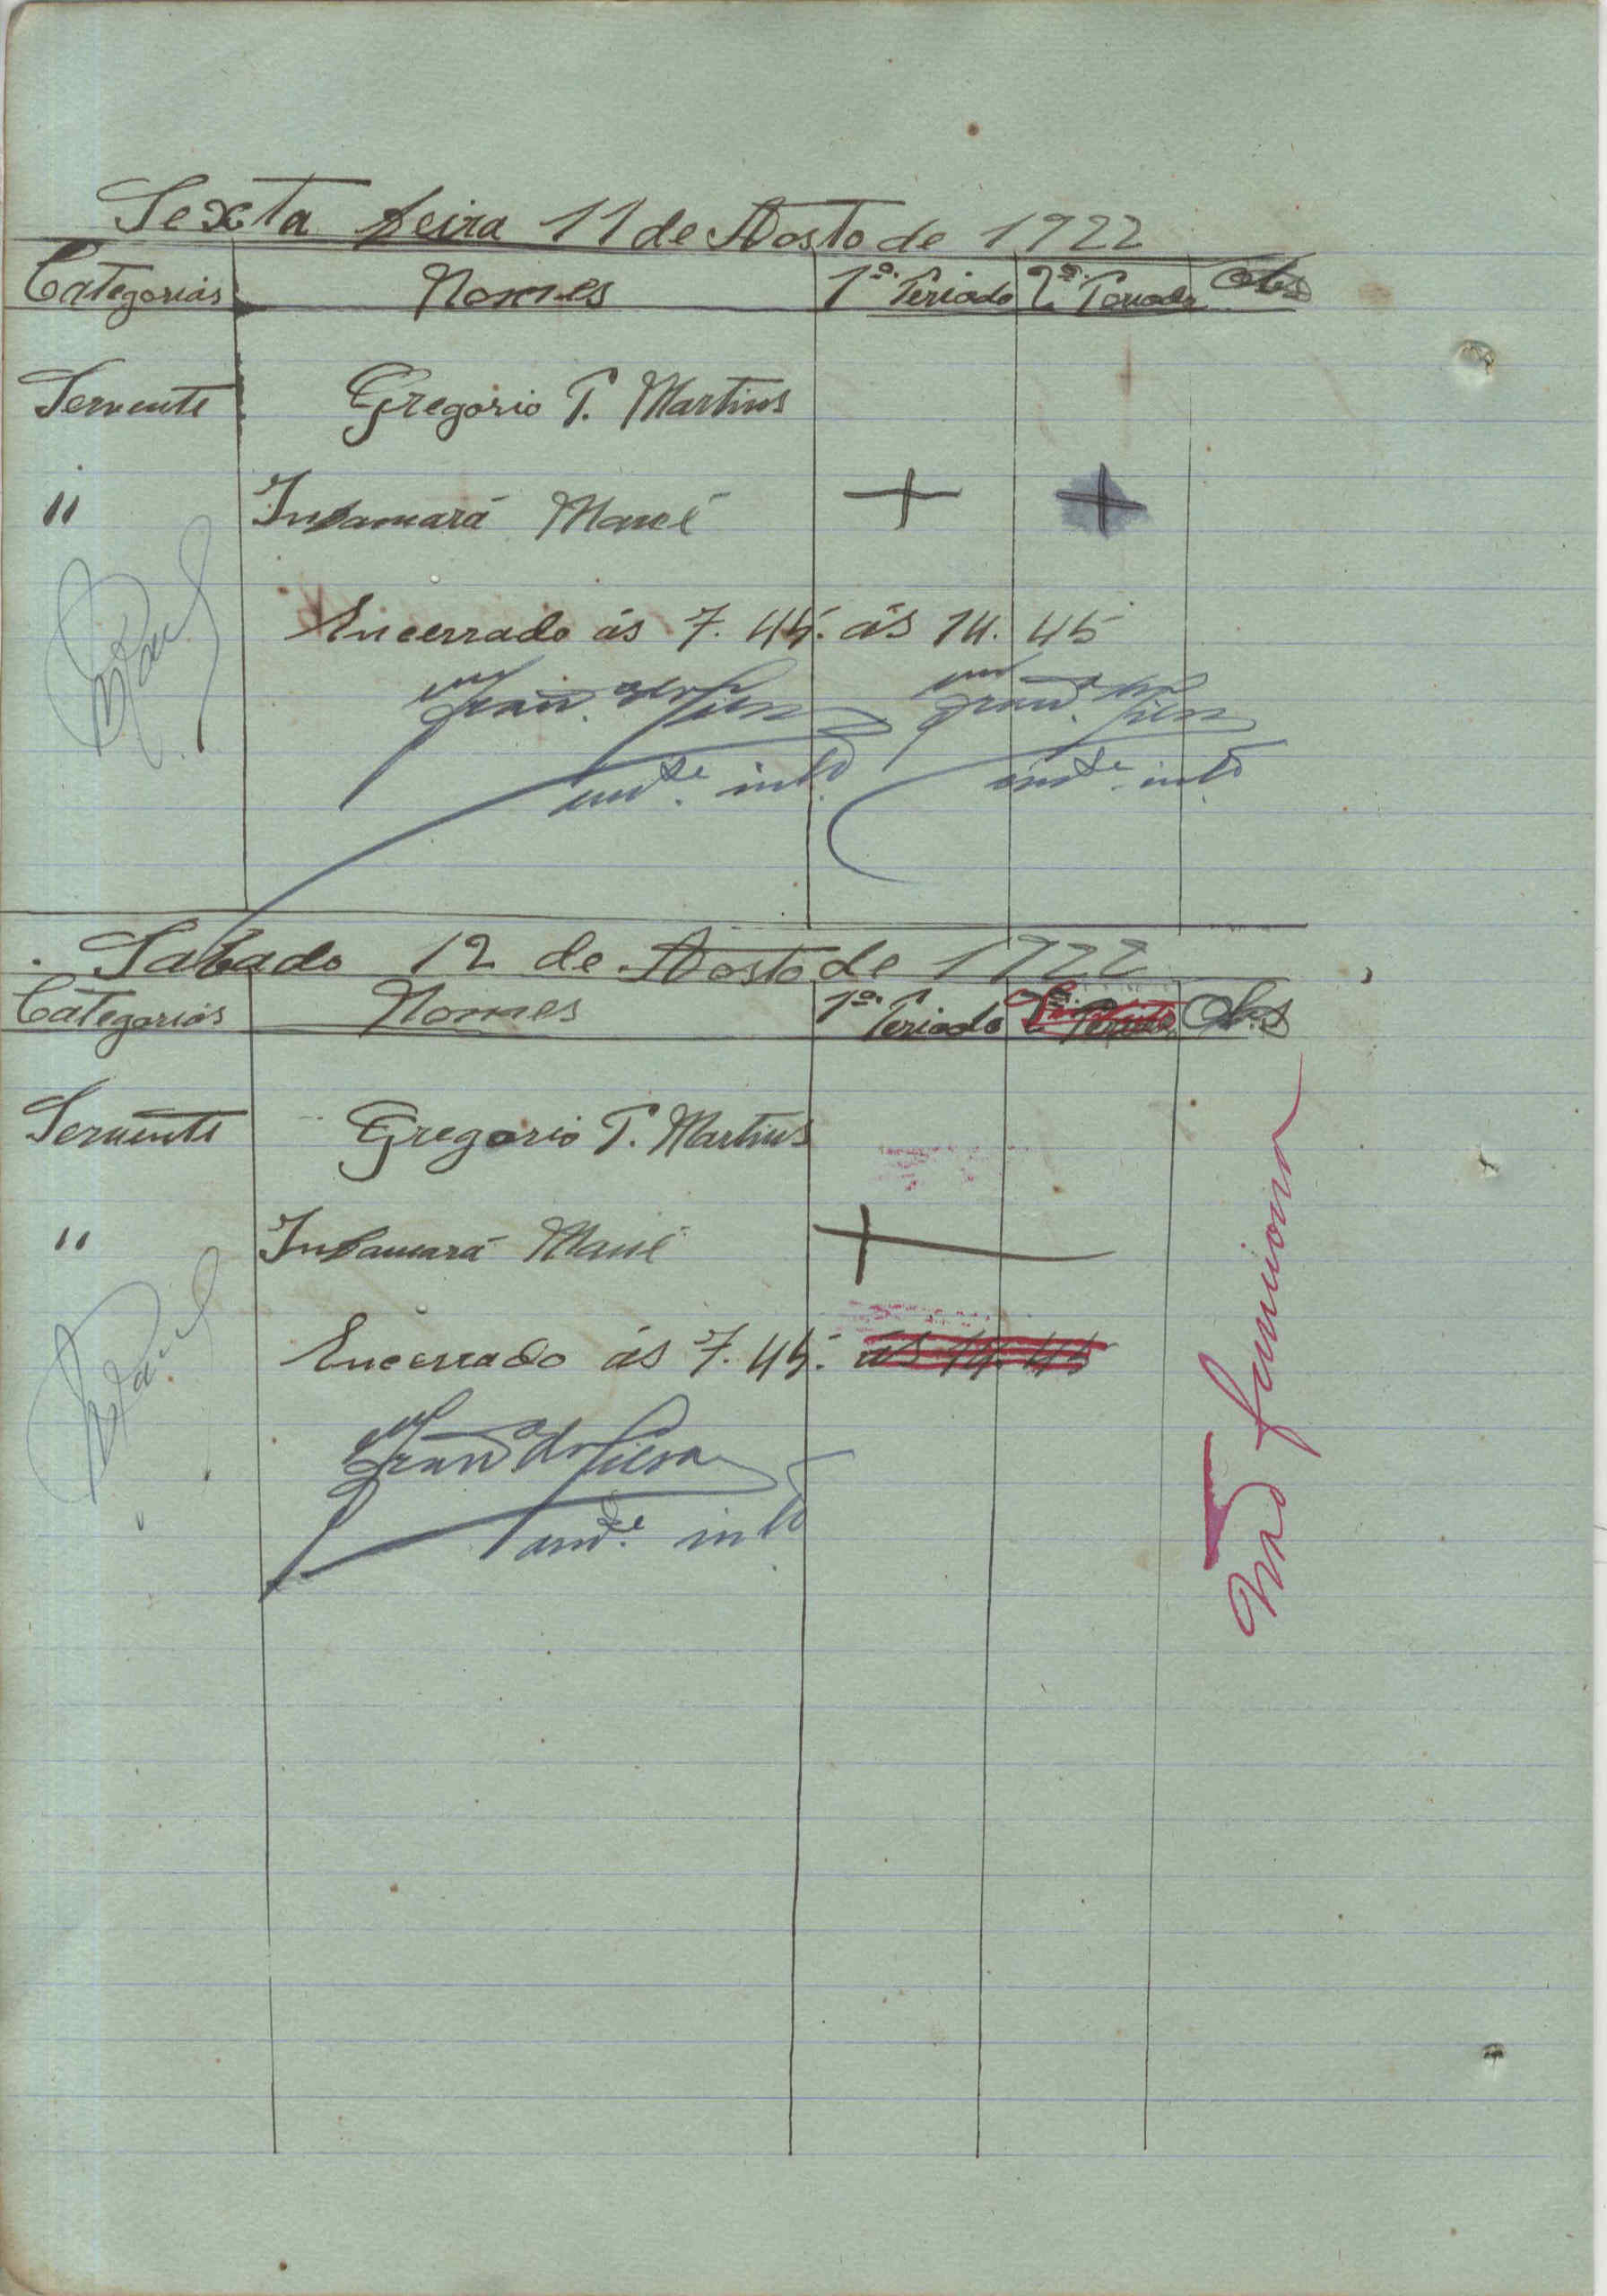 Sexta feira 11 de Agosto de 1922
Categorias Nomes 1º. Periodo 2º. Periodo Obs
Servente Gregorio P. Martins
" Insamará Mané + +
Encerrado ás 7.45. ás 14.45
int.º int.º
Sabado 12 de Agosto de 1922
Categorias Nomes 1º. Periodo 2º Periodo Obs
Servente Gregorio P. Martins
" Insamará Mané +
Encerrado ás 7.45. ás 14.45
Silva
int.º
Não funciona